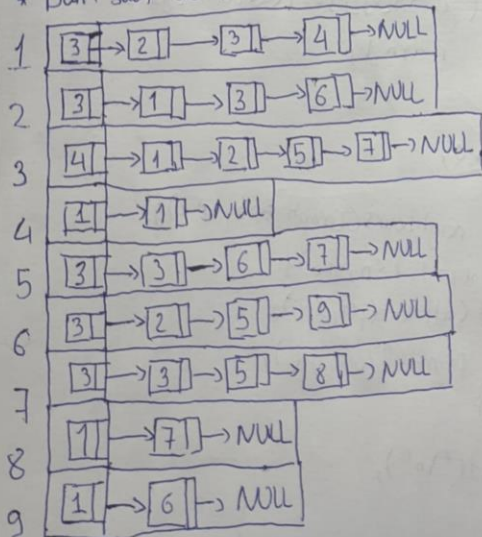 1 3 → 2 → 3 → 4 → NULL
2 3 → 1 → 3 → 6 → NULL
3 4 → 1 → 2 → 5 → 7 → NULL
4 1 → 1 → NULL
5 3 → 3 → 6 → 7 → NULL
6 3 → 2 → 5 → 9 → NULL
7 3 → 3 → 5 → 8 → NULL
8 1 → 7 → NULL
9 1 → 6 → NULL